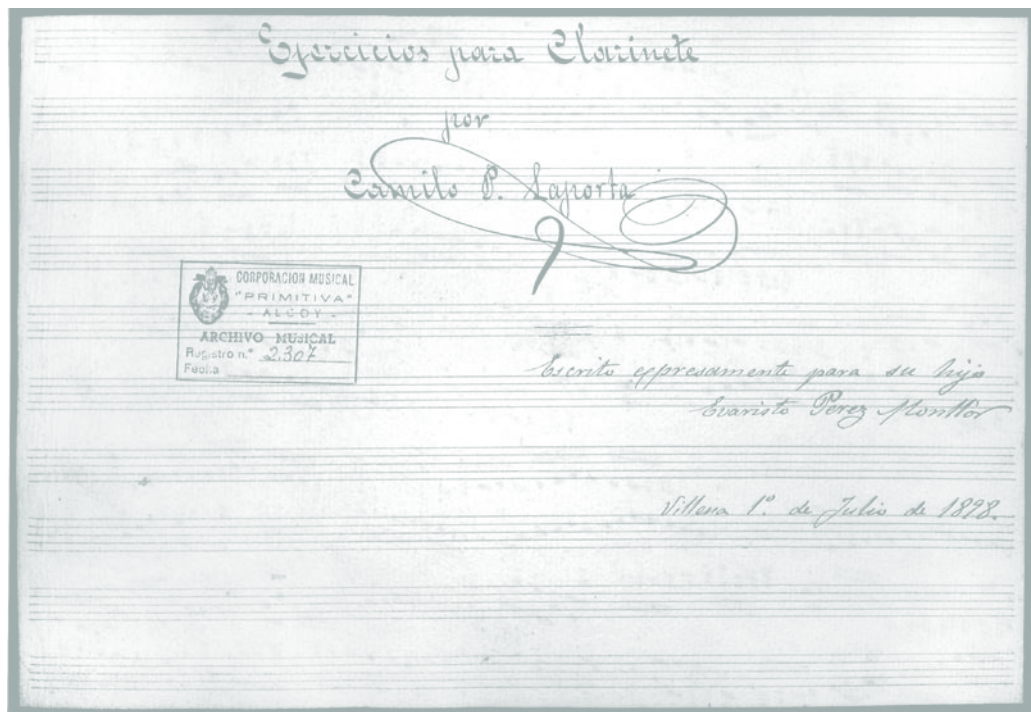 Ejercicios para Clarinete
por
Camilo P. Laporta
CORPORACION MUSICAL
"PRIMITIVA"
- ALCOY -
ARCHIVO MUSICAL
Registro n.º 2.307
Fecha
Escrito expresamente para su hijo
Evaristo Perez Monllor
Villena 1º. de Julio de 1898.